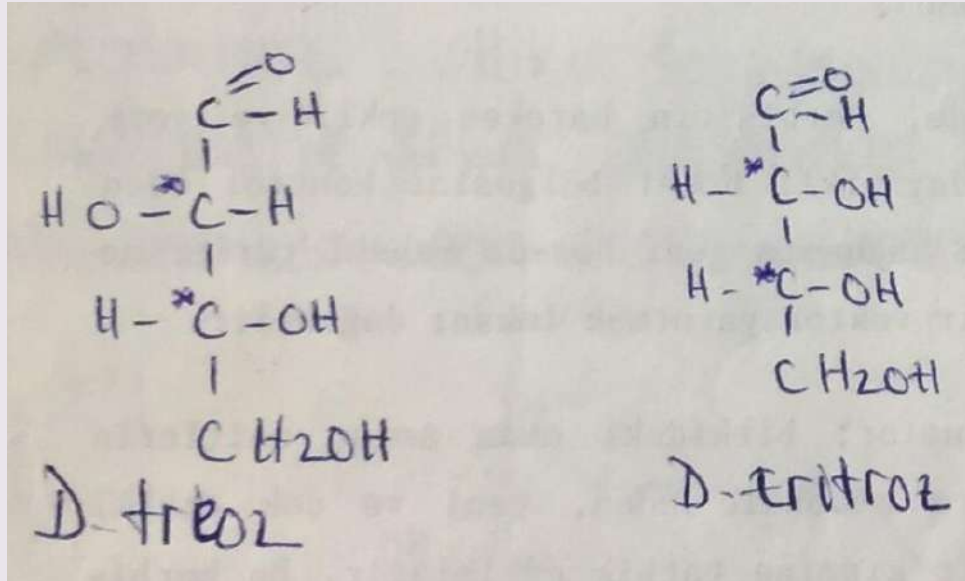 C=O
C-H
HO-*C-H
H-*C-OH
CH2OH
D-treoz
C=O
C-H
H-*C-OH
H-*C-OH
CH2OH
D-Eritroz